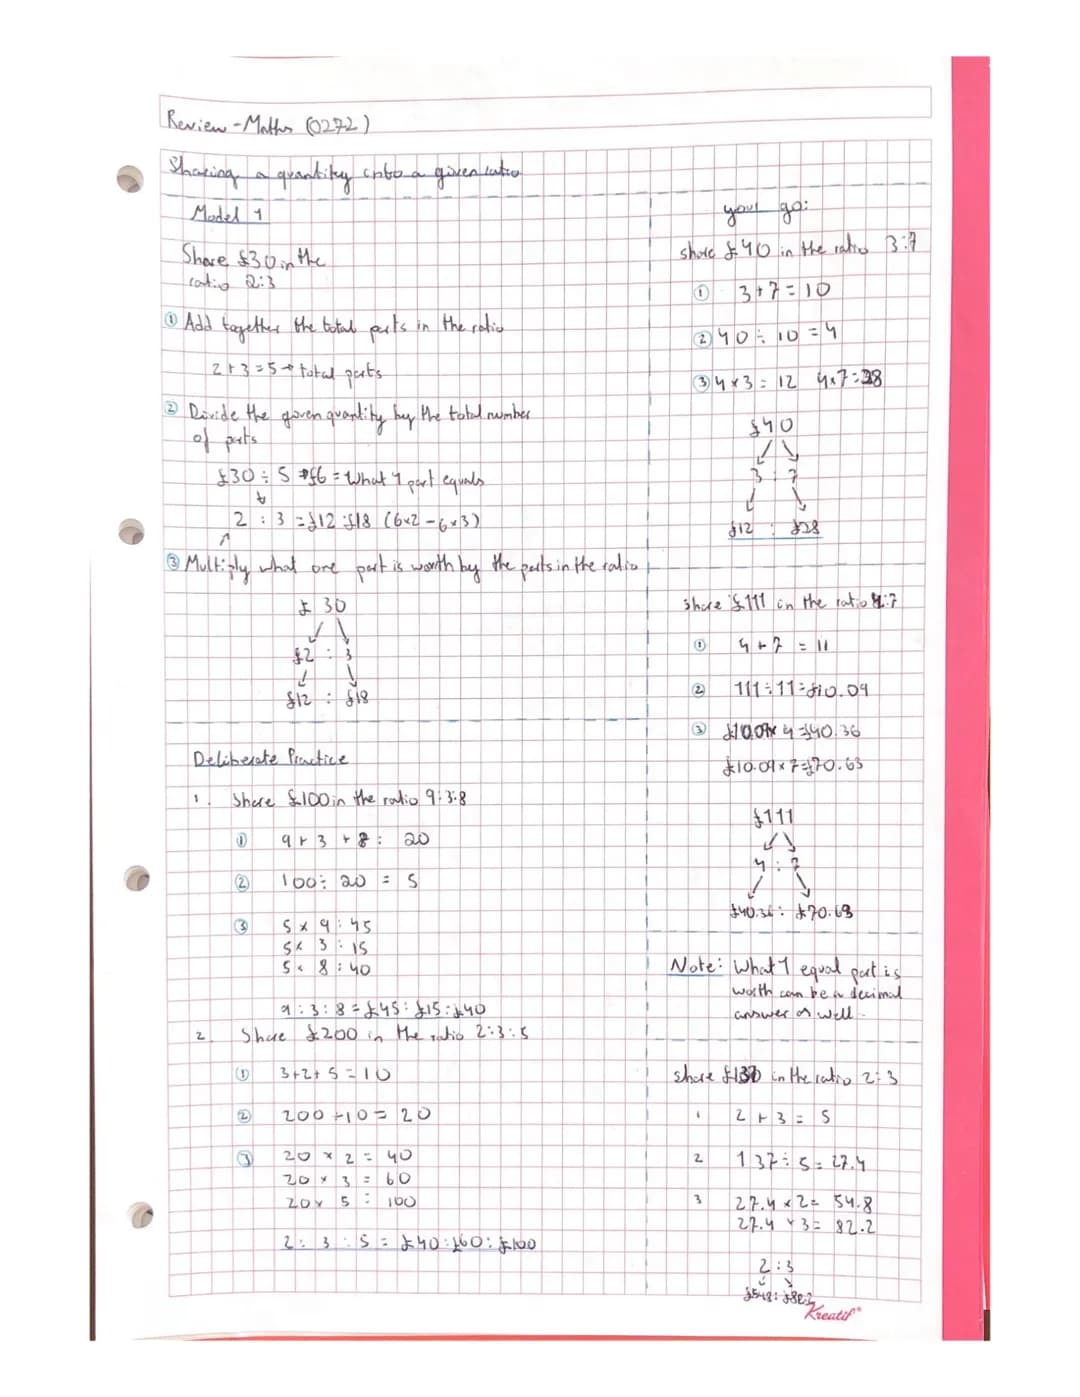 Review - Maths (0272)
Sharing a quantity into a given ratio
Model 1
Share £30 in the
ratio 2:3
① Add together the total parts in the ratio
2+3=5→total parts
② Divide the given quantity by the total number
of parts
£30÷5 → £6 = What 1 part equals
2 : 3 = £12:£18 (6×2 - 6×3)
③ Multiply what one part is worth by the parts in the ratio
£30
£2 : 3
£12 : £18
Deliberate Practice
1. Share £100 in the ratio 9:3:8
① 9+3+8= 20
② 100÷20 = 5
③ 5×9=45
5×3=15
5×8=40
9:3:8=£45:£15:£40
2. Share £200 in the ratio 2:3:5
① 3+2+5=10
② 200÷10=20
③ 20×2=40
20×3=60
20×5=100
2:3:5=£40:£60:£100
your go:
share £40 in the ratio 3:7
① 3+7=10
② 40÷10=4
③ 4×3=12 4×7=28
£40
3:7
£12 : £28
share £111 in the ratio 4:7
① 4+7=11
② 111÷11=£10.09
③ £10.09×4=£40.36
£10.09×7=£70.63
£111
4:7
£40.36: £70.63
Note: What 1 equal part is
worth can be a decimal
answer as well.
share £137 in the ratio 2:3
1 2+3=5
2 137÷5=27.4
3 27.4×2=54.8
27.4×3=82.2
2:3
£54.8: £82.2
Kreatif